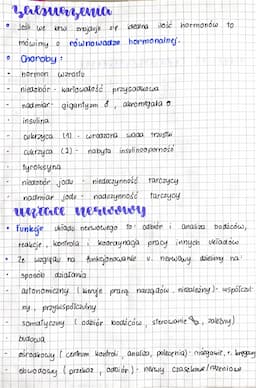 zaburzenia
• Jeśli we krwi znajduje się idealna ilość hormonów to
mówimy o równowadze hormonalnej.
• Choroby:
• hormon wzrostu
- niedobór - karłowatość przysadkowa
- nadmiar - gigantyzm, akromegalia
• insulina
- cukrzyca (1) - wrodzona wada trzustki
- cukrzyca (2) - nabyta insulinooporność
• tyroksyna
- niedobór jodu - niedoczynność tarczycy
- nadmiar jodu - nadczynność tarczycy
nerwowy
• funkcje układu nerwowego to: odbiór i analiza bodźców,
reakcje, kontrola i koordynacja pracy innych układów
• Ze względu na funkcjonowanie u. nerwowy dzielimy na:
• sposób działania
- autonomiczny (kieruje pracą narządów, niezależny) - współczul-
ny, przywspółczulny
- somatyczny (odbiór bodźców, sterowanie, zależny)
budowa
- ośrodkowy (centrum kontroli, analiza, polecenia) - mózgowie, r. kręgowy
- obwodowy (przekaz, odbiór) - nerwy czaszkowe/rdzeniowe